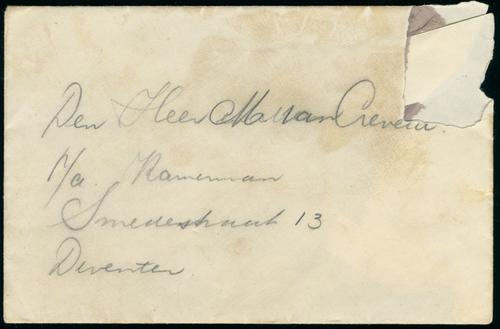 Den Heer M. van Creveld.
p/a Kamerman
Smedestraat 13
Deventer